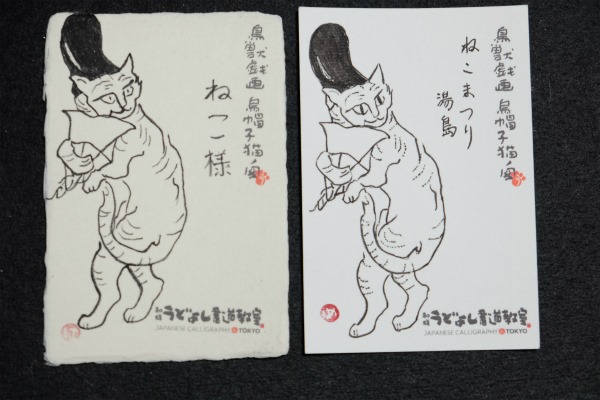 鳥獣戯画 烏帽子猫ノ図
ねこ様
うどよし書道教室
JAPANESE CALLIGRAPHY TOKYO
鳥獣戯画 烏帽子猫ノ図
ねこまつり
湯島
うどよし書道教室
JAPANESE CALLIGRAPHY TOKYO